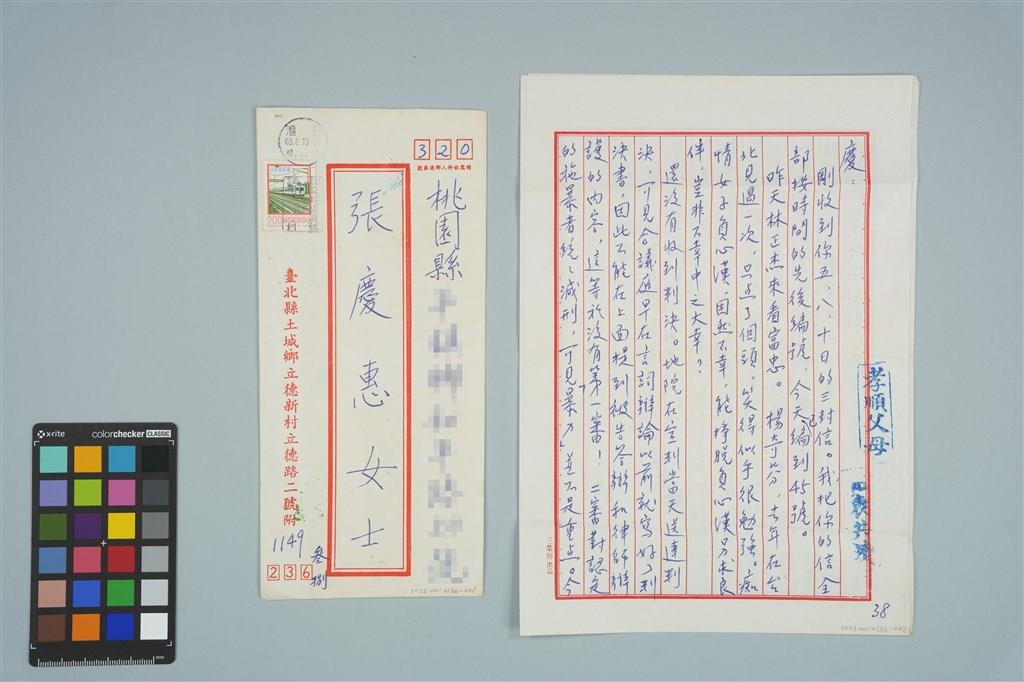 320
桃園縣
張慶惠女士
臺北縣土城鄉立德新村立德路二號附
1149
叁捌
236
200
慶：
剛收到你五、八、十日的三封信。我把你的信全
部按時間的先後編號，今天已編到45號。
昨天林正杰來看富忠。楊奇芬，去年在台
北見過一次，只点了個頭，笑得似乎很勉強。痴
情女子負心漢，固然不幸，能掙脱負心漢另求良
伴，豈非不幸中之大幸？
還没有收到判決。地院在宣判當天送達判
決，可見合議庭早在言詞辯論以前就寫好了判
決書，因此不能在上面提到被告答辯和律師辯
護的内容，這等於没有第一審！二審對認定
的施暴者統統減刑，可見「暴力」並不是重点。今
孝順父母
三榮牌出品
38
2023-001-0136-001
2023-001-0136-002
x-rite
colorchecker CLASSIC